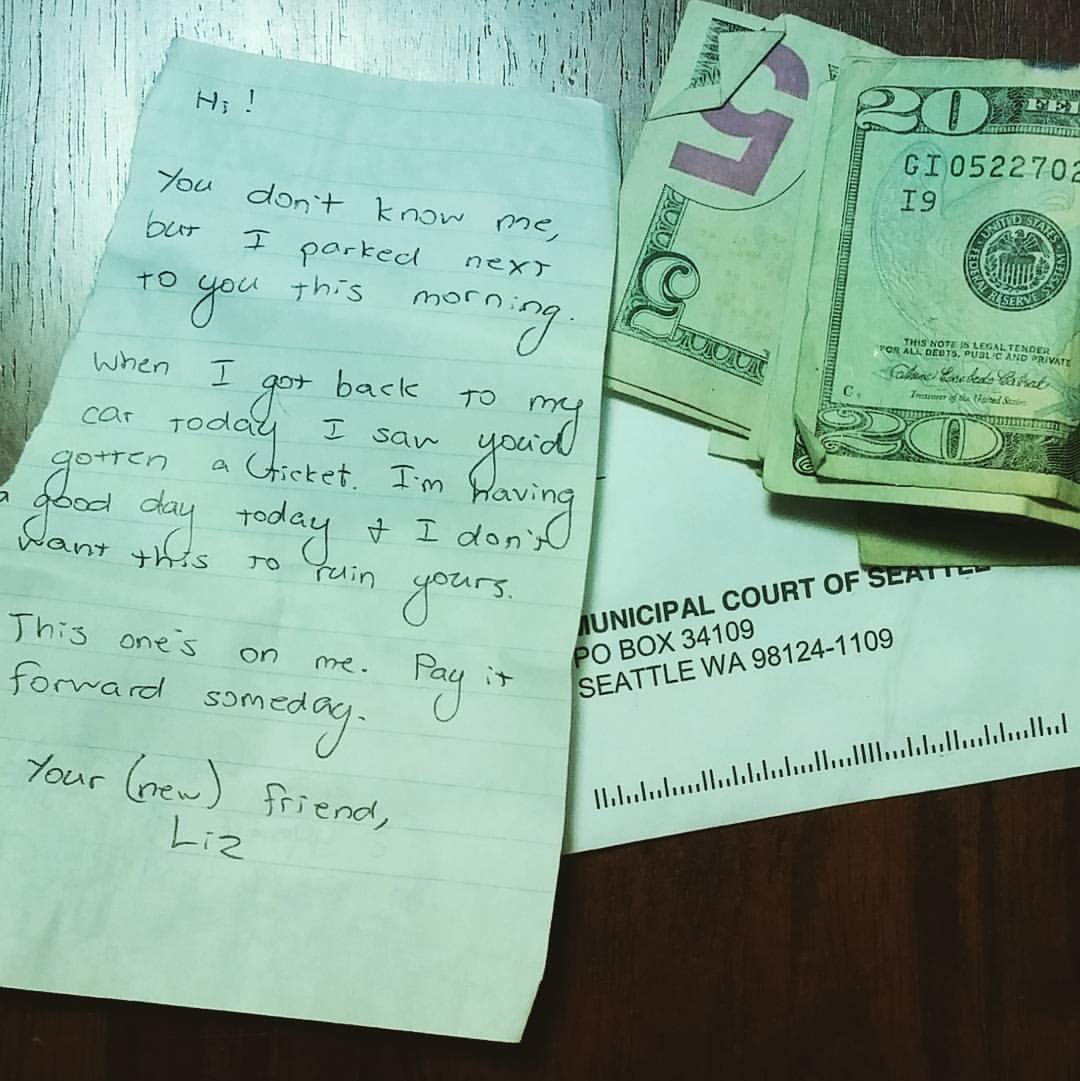 Hi!
You don't know me,
but I parked next
to you this morning.
When I got back to my
car today I saw you'd
gotten a ticket. I'm having
a good day today & I don't
want this to ruin yours.
This one's on me. Pay it
forward someday.
Your (new) friend,
Liz
5
5
20
GI0522702
I9
UNITED STATES
FEDERAL RESERVE SYSTEM
THIS NOTE IS LEGAL TENDER
FOR ALL DEBTS, PUBLIC AND PRIVATE
Treasurer of the United States
20
MUNICIPAL COURT OF SEATTLE
PO BOX 34109
SEATTLE WA 98124-1109